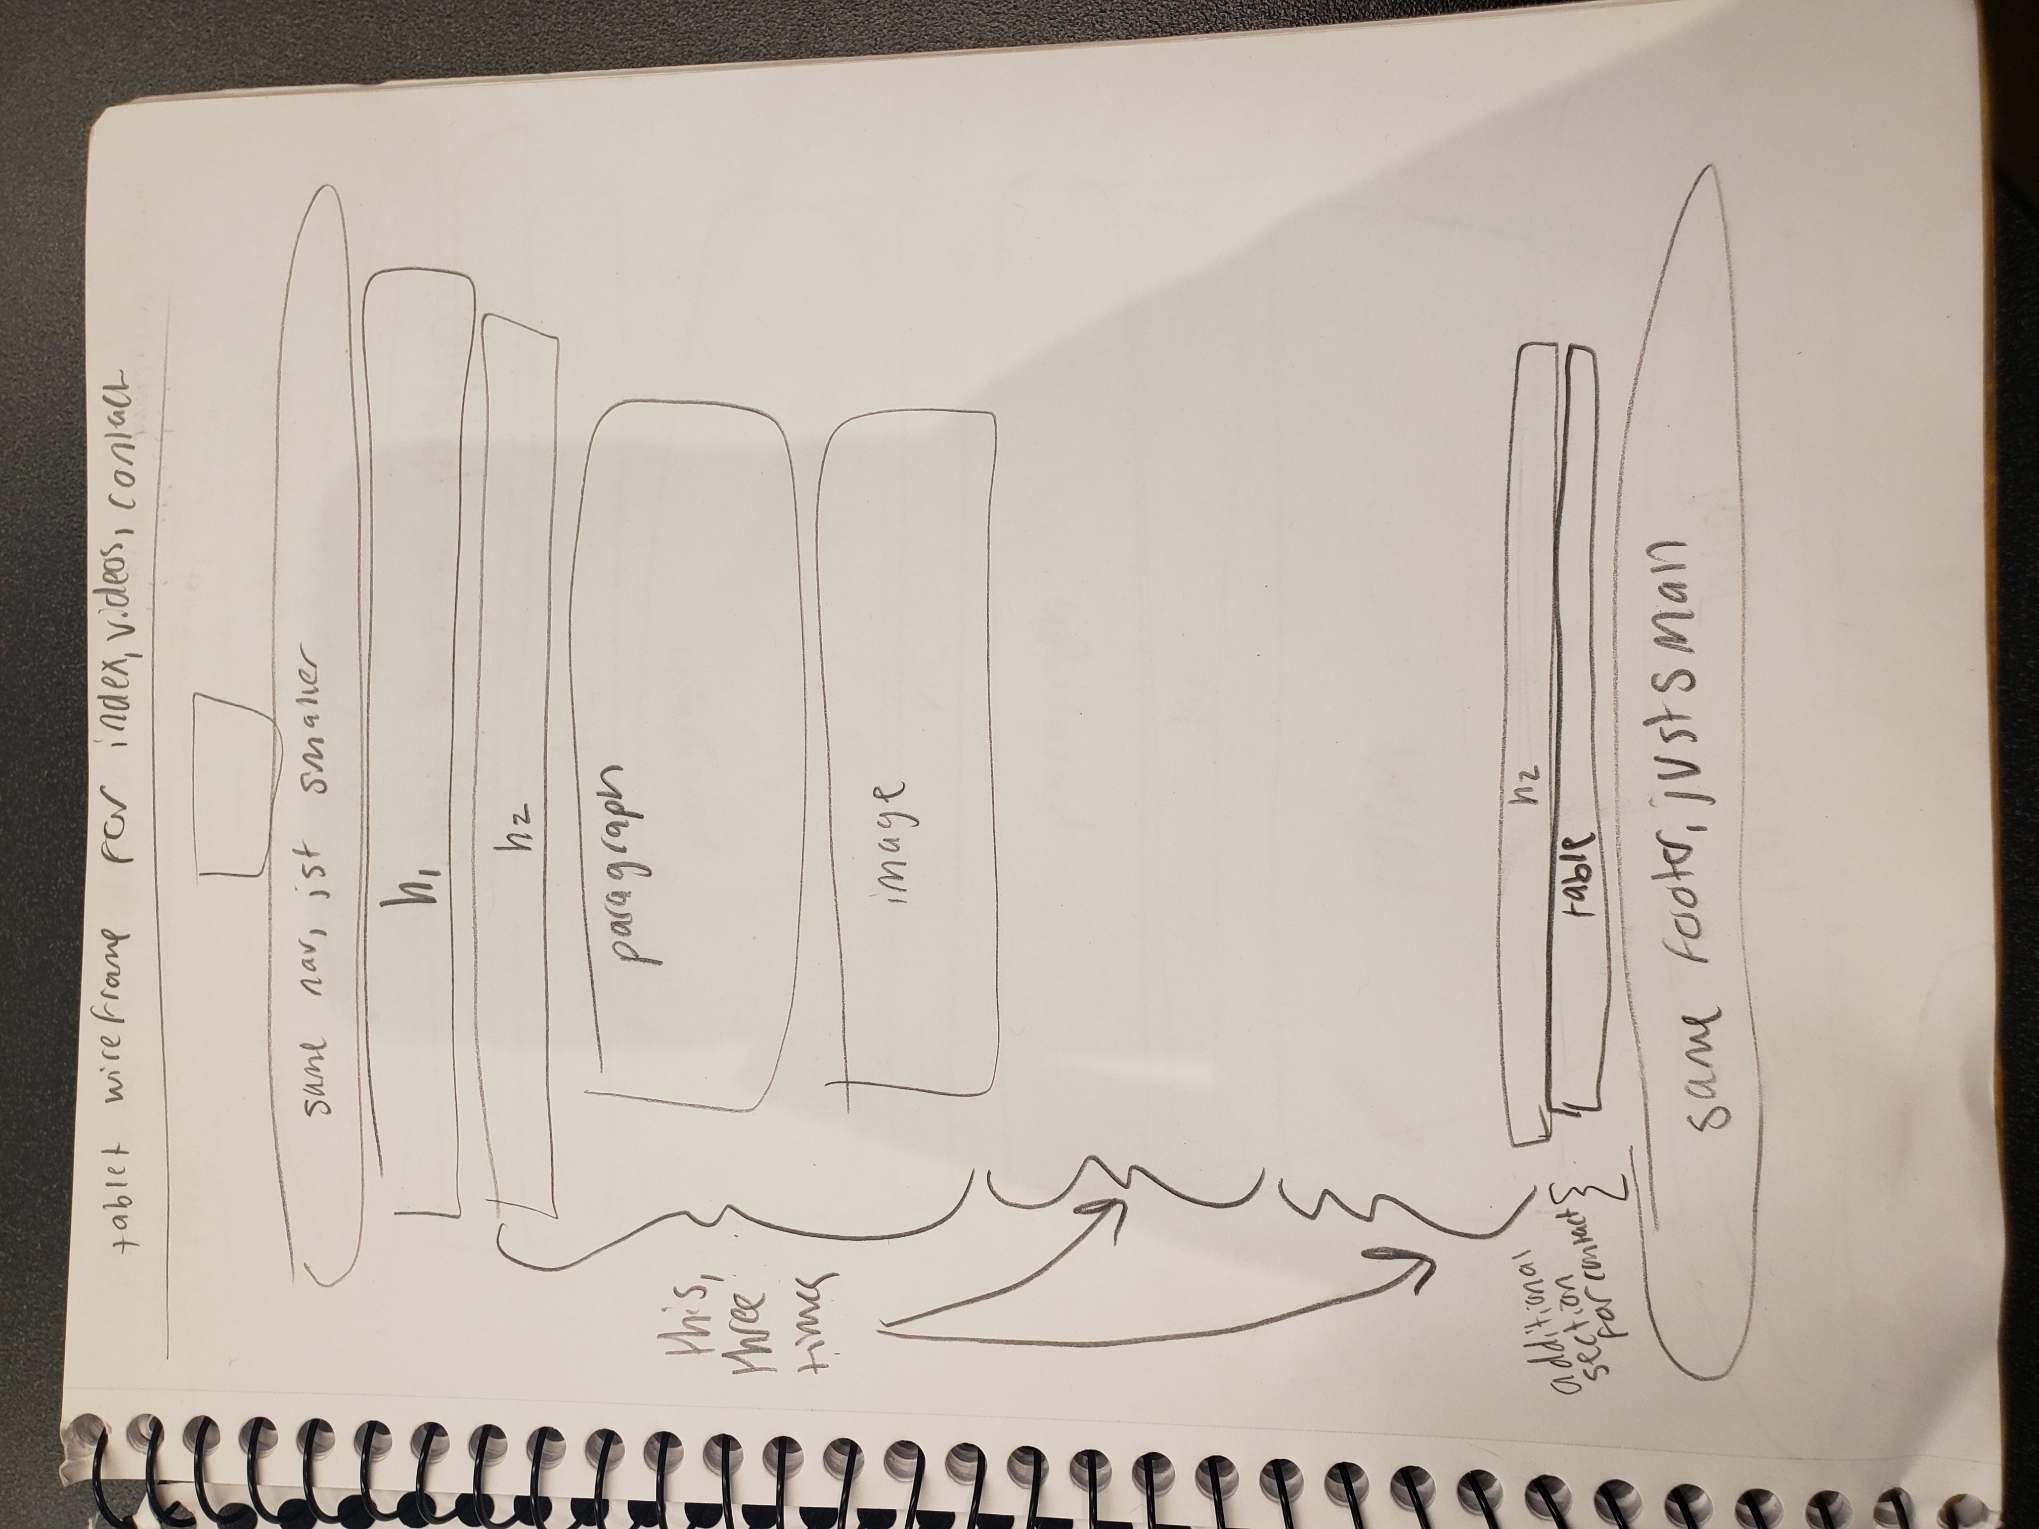 tablet wireframe for index, videos, contact
same nav, jst smaller
h1
h2
paragraph
this,
three
times
image
h2
additional
section
for contact
table
same footer, just small